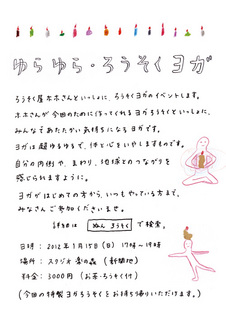 ゆらゆら・ろうそくヨガ
ろうそく屋ホホさんといっしょに、ろうそくヨガのイベントします。
ホホさんが今回のために作ってくれるヨガろうそくといっしょに、
みんなであたたかい気持ちになるヨガです。
ヨガは超ゆるゆるで、体と心をいやしますものです。
自分の内側や、まわり、地球とのつながりを
感じられますように。
ヨガがはじめての方から、いつもやっている方まで、
みなさんご参加くださいませ。
詳細は ぬん ろうそく で検索。
日時：2012年1月15日(日) 17時〜19時
場所：スタジオ 森の (新開地)
料金：3000円 (お茶・ろうそく付)
(今回の特製ヨガろうそくをお持ち帰りいただけます。)